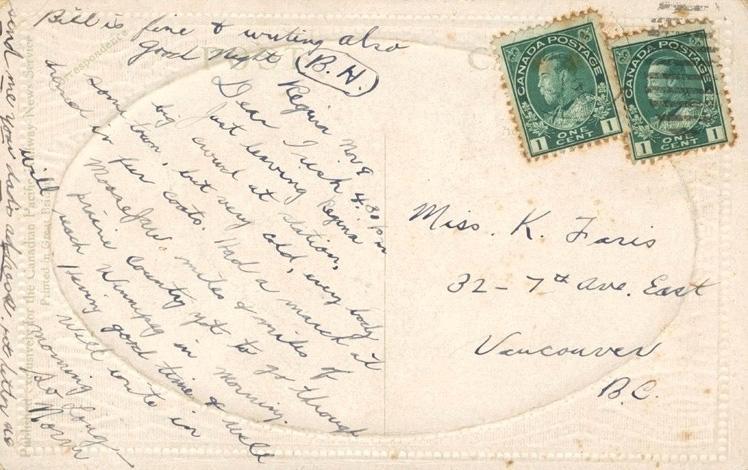 Bill is fine & writing also
good night (B.H.)
POST
Correspondence
Regina Nov 9 4.30 P.M
Dear
Just leaving Regina
big crowd at station,
some town, but very cold, every body
in fur coats. Had a march at
Moosejaw. miles & miles of
prairie country yet to go through
reach Winnipeg in morning.
Having good time & will
will write in
morning
So Long
Norm
send me your address, letter as
Published exclusively for the Canadian Pacific Railway News Service
Printed in Great Britain
CANADA POSTAGE
1 ONE CENT 1
CANADA POSTAGE
1 ONE CENT 1
Miss. K. Faris
32 - 7th Ave. East
Vancouver
B.C.